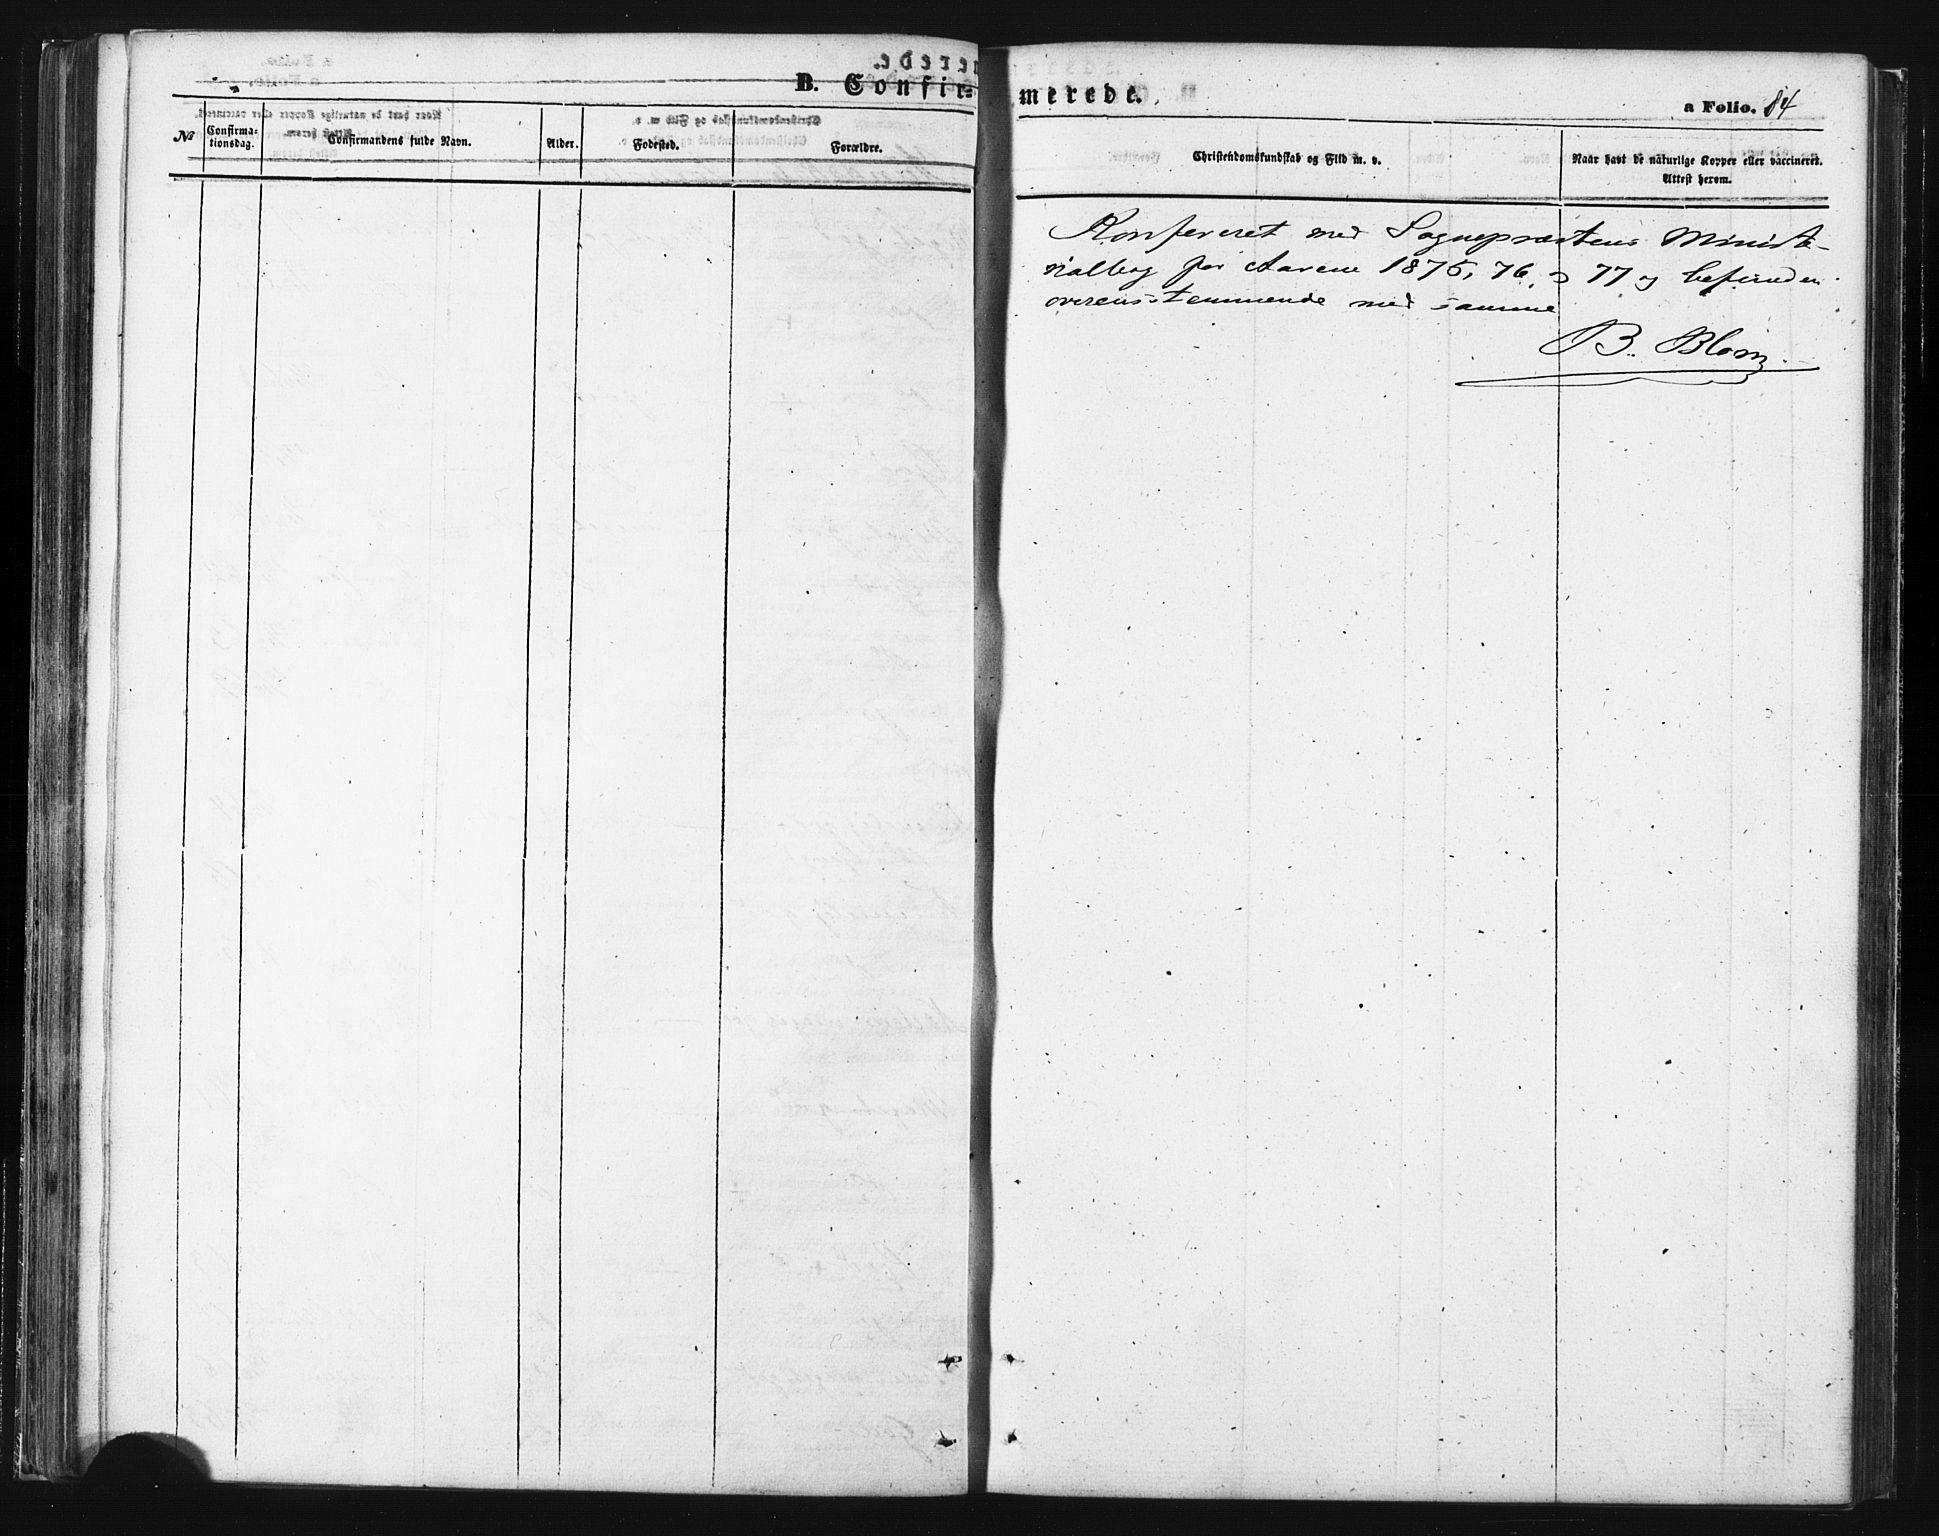 B. Confir-
merede.
a Folio. 84
No
Confirma-
tionsdag.
Confirmandens fulde Navn.
Alder.
Fodested.
Forældre.
Christendomskundskab og Flid m. v.
Naar havt de naturlige Kopper eller vaccineret.
Attest herom.
Konfereret med Sognepræstens Ministe-
rialbog for Aarene 1875, 76, og 77 og befunden
overensstemmende med samme
B. Blom.